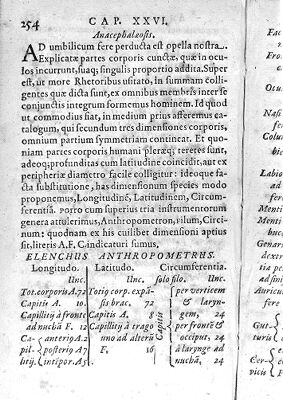 254 CAP. XXVI.
Anacephalæosis.
AD umbilicum fere perducta est opella nostra.
Explicatæ partes corporis cunctæ, quæ in ocu
los incurrunt, suaq; singulis proportio addita. Super
est, ut more Rhetoribus usitato, in summam colli
gentes quæ dicta sunt, ex omnibus membris inter se
conjunctis integrum formemus hominem. Id quod
ut commodius fiat, in medium prius afferemus ca
talogum, qui secundum tres dimensiones corporis,
omnium partium symmetriam contineat. Et quo
niam partes corporis humani pleræq; teretes sunt,
adeoq; profunditas cum latitudine coincidit, aut ex
peripheriæ diametro facile colligitur: ideoque fa
cta substitutione, has dimensionum species modo
proponemus, Longitudinē, Latitudinem, Circum
ferentiā. Porro cum superius tria instrumentorum
genera attulerimus, Anthropometron, Filum, Circi
num: quodnam ex his cuilibet dimensioni aptius
sit, literis A. F. C. indicaturi sumus.
ELENCHUS ANTHROPOMETRUS.
Longitudo. Latitudo. Circumferentia.
Unc. Unc. solo filo. Unc.
Tot. corporis A. 72
Capitis A. 10.
Capillitij à fronte
ad nuchā F. 12
Ca- anterio q A. 2
pil- posterio q A. 7
litij.
Totiq corp. expā-
sis brac. 72
Capitis A. 8
Capillitij à trago
mo ad alterū
F. 16
Capitis
per verticem
& laryn-
gem 24
per frontē &
occiput, 24
à larynge ad
nuchā, 24
Nas
Colum
Labio
Mento
Auricu
Gut-
Cer-
vicis